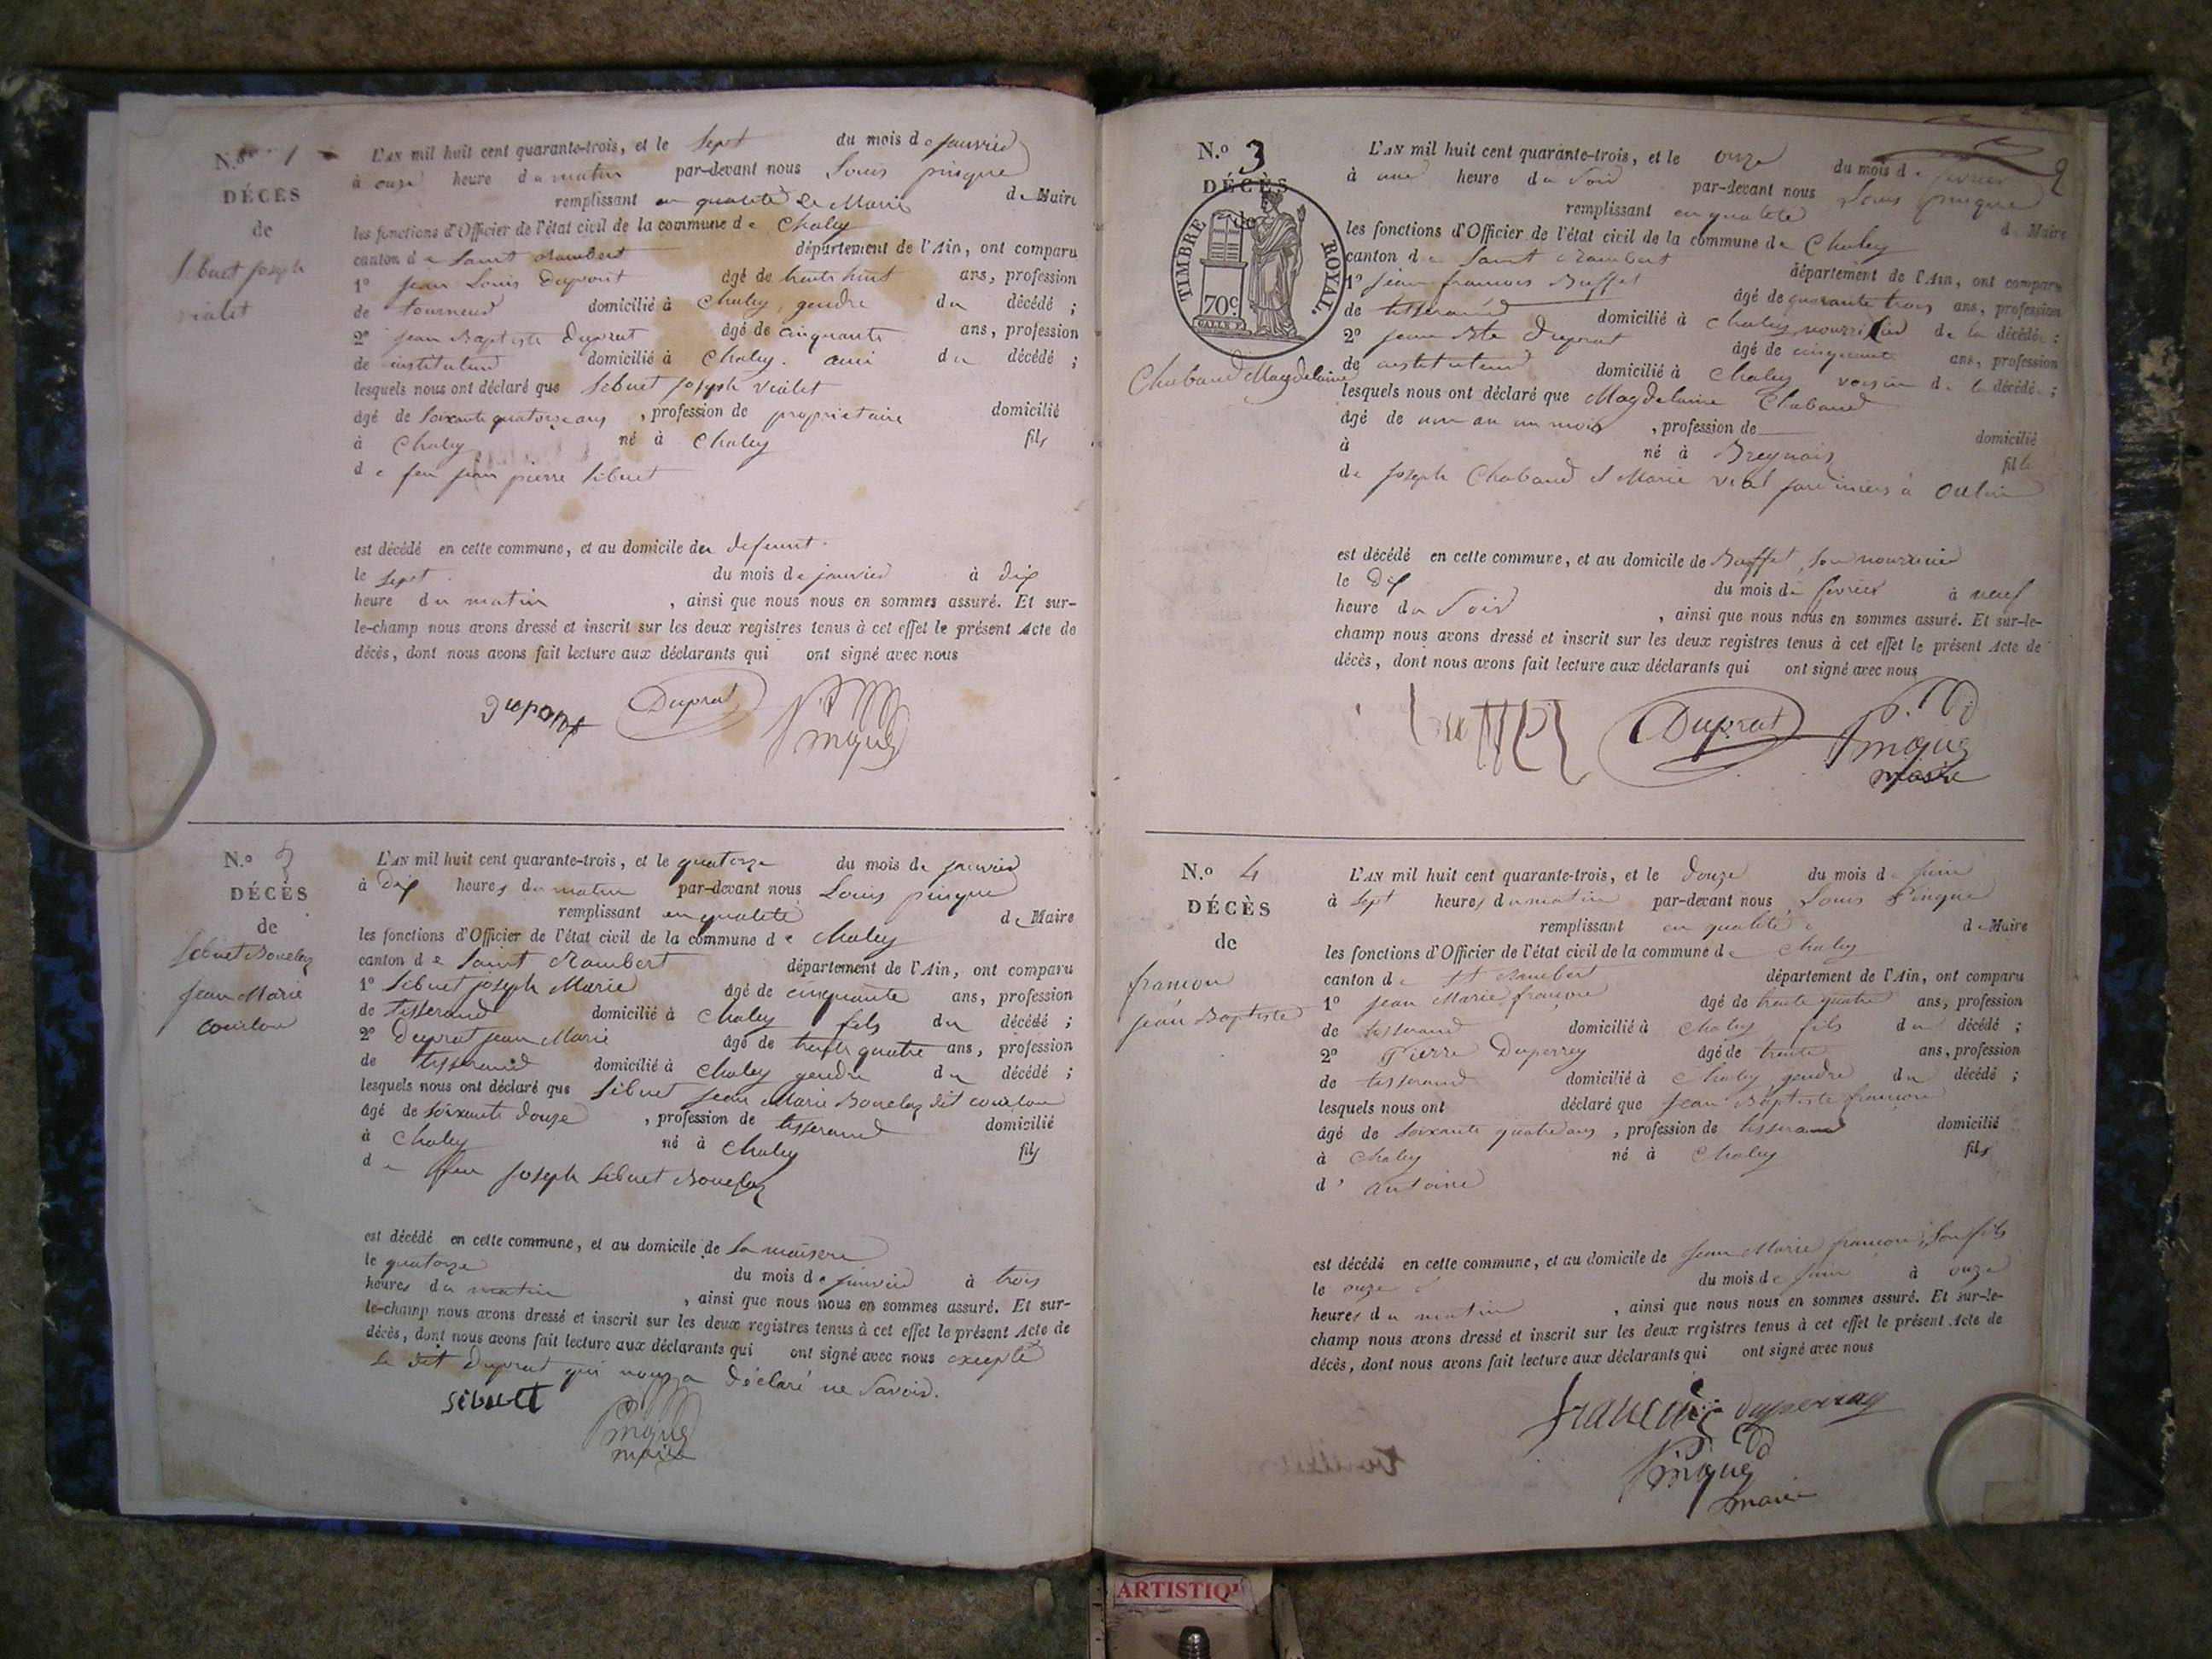 N.º 1
DÉCÈS
de
Sibuet Joseph
vialet
L'AN mil huit cent quarante-trois, et le Sept du mois de janvier
à onze heure du matin par-devant nous Louis pingue
remplissant en qualité de Maire de Maire
les fonctions d'Officier de l'état civil de la commune de Chaley
canton de Saint Rambert département de l'Ain, ont comparu
1º Jean Louis Dupont âgé de trente huit ans, profession
de tourneur domicilié à Chaley, gendre du décédé ;
2º Jean Baptiste Duprat âgé de cinquante ans, profession
de instituteur domicilié à Chaley. ami du décédé ;
lesquels nous ont déclaré que Sibuet joseph vialet
âgé de soixante quatorze ans, profession de propriétaire domicilié
à Chaley né à Chaley fils
de feu jean pierre Sibuet
est décédé en cette commune, et au domicile du defeunt.
le sept du mois de janvier à dix
heure du matin, ainsi que nous nous en sommes assuré. Et sur-
le-champ nous avons dressé et inscrit sur les deux registres tenus à cet effet le présent Acte de
décès, dont nous avons fait lecture aux déclarants qui ont signé avec nous
dupont Duprat Pingue
N.º 2
DÉCÈS
de
Sibuet Bouclaz
Jean Marie
courlou
L'AN mil huit cent quarante-trois, et le quatorze du mois de janvier
à Dix heures du matin par-devant nous Louis pingue
remplissant en qualité de Maire
les fonctions d'Officier de l'état civil de la commune de Chaley
canton de Saint Rambert département de l'Ain, ont comparu
1º Sibuet joseph Marie âgé de cinquante ans, profession
de Tisserand domicilié à Chaley fils du décédé ;
2º Duprat jean Marie âgé de trente quatre ans, profession
de tisserand domicilié à Chaley gendre du décédé ;
lesquels nous ont déclaré que Sibuet Jean Marie Bouclaz dit courlou
âgé de soixante douze, profession de tisserand domicilié
à Chaley né à Chaley fils
de feu Joseph Sibuet Bouclaz
est décédé en cette commune, et au domicile de
le quatorze du mois de janvier à trois
heures du matin, ainsi que nous nous en sommes assuré. Et sur-
le-champ nous avons dressé et inscrit sur les deux registres tenus à cet effet le présent Acte de
décès, dont nous avons fait lecture aux déclarants qui ont signé avec nous excepté
le dit Duprat qui nous a déclaré ne savoir.
sibuet Pingue
maire
N.º 3
DÉCÈS
de
TIMBRE ROYAL.
70c.
Chaband Magdelaine
2
L'AN mil huit cent quarante-trois, et le onze du mois de fevrier
à une heure du soir par-devant nous Louis pingue
remplissant en qualité de Maire
les fonctions d'Officier de l'état civil de la commune de Chaley
canton de Saint Rambert département de l'Ain, ont comparu
1º Jean francois Buffet âgé de quarante trois ans, profession
de tisserand domicilié à Chaley, nourricier de la décédée ;
2º jean Bte Duprat âgé de cinquante ans, profession
de instituteur domicilié à Chaley voisin de la décédée ;
lesquels nous ont déclaré que Magdelaine Chaband
âgé de un an un mois, profession de domicilié
à né à fille
de joseph Chaband et Marie vial jardiniers à Oulin
est décédé en cette commune, et au domicile de Buffet, son nourricier
le dix du mois de fevrier à neuf
heure du Soir, ainsi que nous nous en sommes assuré. Et sur-le-
champ nous avons dressé et inscrit sur les deux registres tenus à cet effet le présent Acte de
décès, dont nous avons fait lecture aux déclarants qui ont signé avec nous
buffet Duprat Pingue
maire
N.º 4
DÉCÈS
de
francon
jean Baptiste
L'AN mil huit cent quarante-trois, et le douze du mois de juin
à sept heures du matin par-devant nous Louis Pingue
remplissant en qualité de Maire
les fonctions d'Officier de l'état civil de la commune de Chaley
canton de St Rambert département de l'Ain, ont comparu
1º jean Marie françon âgé de trente quatre ans, profession
de tisserand domicilié à Chaley fils du décédé ;
2º Pierre Duperrey âgé de trente ans, profession
de tisserand domicilié à Chaley gendre du décédé ;
lesquels nous ont déclaré que Jean Baptiste françon
âgé de soixante quatre ans, profession de tisserand domicilié
à Chaley né à Chaley fils
d' Antoine
est décédé en cette commune, et au domicile de Jean Marie françon, son fils
le onze du mois de juin à onze
heures du matin, ainsi que nous nous en sommes assuré. Et sur-le-
champ nous avons dressé et inscrit sur les deux registres tenus à cet effet le présent Acte de
décès, dont nous avons fait lecture aux déclarants qui ont signé avec nous
duperray
Pingue
maire
ARTISTIQ